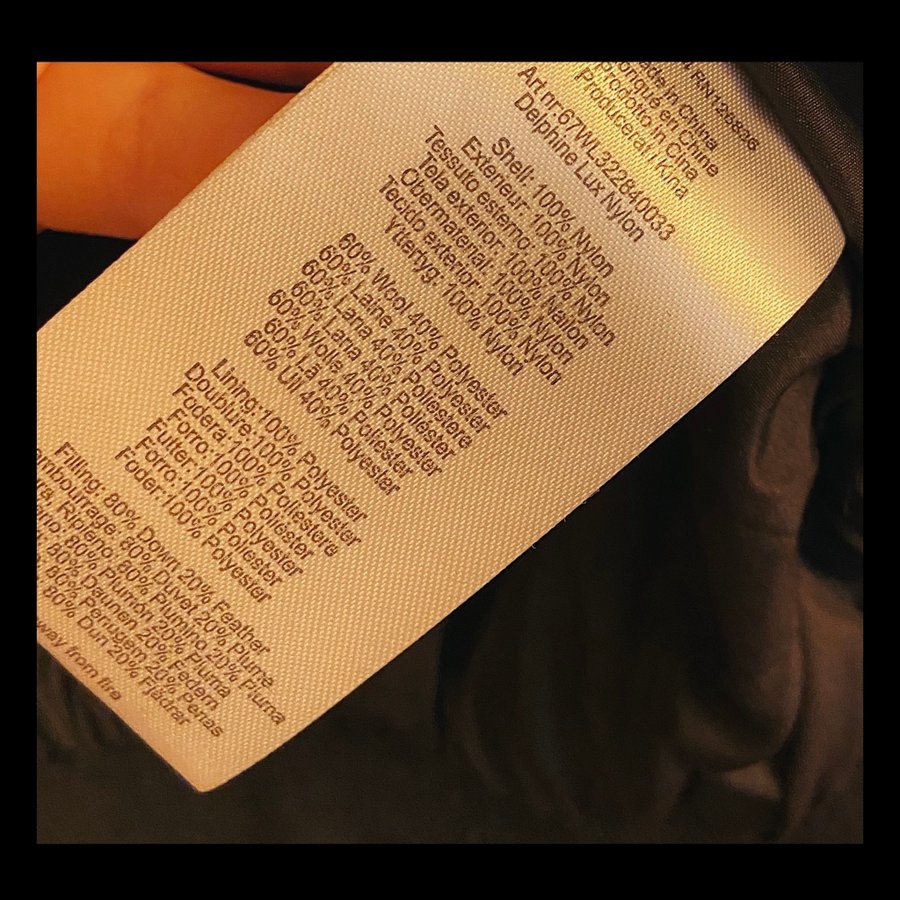 RN123836
Made in China
Fabriqué en Chine
Prodotto in Cina
Producerad i Kina
Art nr:67WL322840033
Delphine Lux Nylon
Shell: 100% Nylon
Extérieur: 100% Nylon
Tessuto esterno: 100% Nylon
Tela exterior: 100% Nailon
Obermaterial: 100% Nylon
Tecido exterior: 100% Nylon
Yttertyg: 100% Nylon
60% Wool 40% Polyester
60% Laine 40% Polyester
60% Lana 40% Poliestere
60% Lana 40% Poliéster
60% Wolle 40% Polyester
60% Lã 40% Poliéster
60% Ull 40% Polyester
Lining:100% Polyester
Doublure:100% Polyester
Fodera:100% Poliestere
Forro:100% Poliéster
Futter:100% Polyester
Forro:100% Poliéster
Foder:100% Polyester
Filling: 80% Down 20% Feather
Rembourrage: 80% Duvet 20% Plume
Ripieno: 80% Piumino 20% Piuma
80% Plumón 20% Pluma
80% Daunen 20% Federn
80% Penugem 20% Penas
80% Dun 20% Fjädrar
away from fire